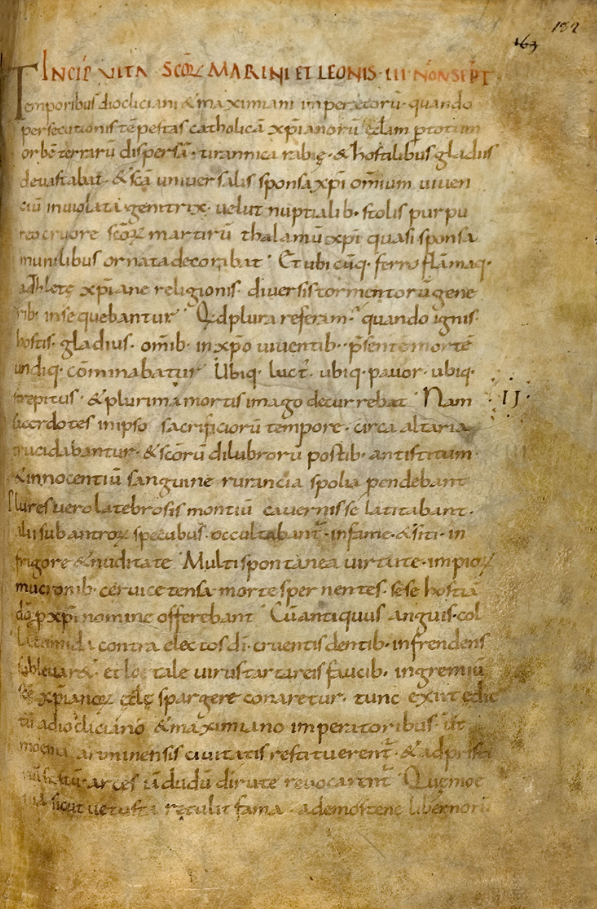 182
163
INCIP VITA SCOꝜ MARINI ET LEONIS · III · NON SEPT
Temporibus diocliciani & maximiani imperatorū · quando
persecutionis tēpestas catholicā xp̄ianorū totum
orbē terrarū dispersā · tirannica rabię · & hostilibus gladiis
devastabat · & scā universalis sponsa xp̄i om̄ium viven
tiū inviolata genitrix · velut nuptialib · stolis purpu
reo cruore scōꝝ martirū thalamū xp̄i quasi sponsa
munilibus ornata decorabat · Et ubicūq · ferro flāmaq ·
adhletę xp̄iane religionis · diversis tormentorū gene
rib · insequebantur · Qd plura referam · quando ignis ·
hostis · gladius · om̄ib · in xp̄o viventib · p̄sente mortē
undiq · cōminabatur · Ubiq · luct · ubiq · pavor · ubiq ·
strepitus · & plurima mortis imago decurrebat · Nam
II
sacerdotes in ipso sacrificiorū tempore · circa altaria
trucidabantur · & scōrū dilubrorū postib · antistitum ·
& innocentiū sanguine rurancia spolia pendebant
Plures vero latebrosis montiū cavernis se latitabant ·
alii sub antroꝝ specubus · occultabant · in fame · & siti · in
frigore & nuditate · Multi spontanea virtute · impioꝝ
mucronib · cervice tensa morte spernentes · sese hostiā
dō p xp̄i nomine offerebant · Cū antiquus anguis · col
la tumida contra electos dī · cruentis dentib · infrendens
sublevaret · et loetale virus tartareis faucib · in gremiū
xp̄ianoꝝ spargere conaretur · tunc exiit edic
tū a diocliciano & maximiano imperatoribus · ut
moenia ariminensis civitatis restituerent · & ad pristi
arces iādudū dirute revocarent · Quemoe
nia sicut vetusta retulit fama · a demostene libernorū